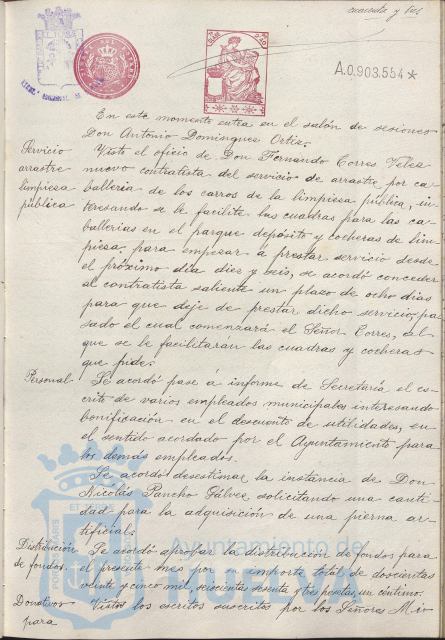 cuarenta y tres
A.0.903.554*
En este momento entra en el salón de sesiones
Don Antonio Domínguez Ortiz.
Servicio arrastre limpieza pública
Visto el oficio de Don Fernando Torres Velez
nuevo contratista del servicio de arrastre por ca-
ballería de los carros de la limpieza pública, in-
teresando se le facilite las cuadras para las ca-
ballerías en el parque depósito y cocheras de lim-
pieza, para empezar a prestar servicio desde
el próximo día diez y seis, se acordó conceder
al contratista saliente un plazo de ocho días
para que deje de prestar dicho servicio, pa-
sado el cual comenzará el Señor Torres, al
que se le facilitarán las cuadras y cocheras
que pide.
Personal
Se acordó pase a informe de Secretaría el es-
crito de varios empleados municipales interesando
bonificación en el descuento de utilidades, en
el sentido acordado por el Ayuntamiento para
los demás empleados.
Se acordó desestimar la instancia de Don
Nicolás Pancho Gálvez solicitando una canti-
dad para la adquisición de una pierna ar-
tificial.
Distribución de fondos.
Se acordó aprobar la distribución de fondos para
el presente mes por su importe total de doscientas
veinte y cinco mil, seiscientas sesenta y tres pesetas, un céntimo.
Donativos para
Vistos los escritos suscritos por los Señores Mio
Ayuntamiento de
Huelva